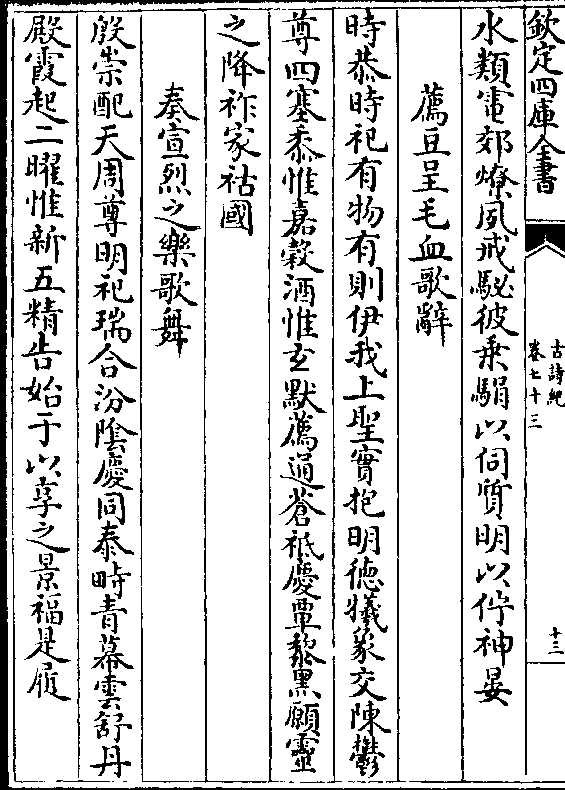 欽定四庫全書
古詩紀
卷七十三
十三
水類電郊燎夙戒駜彼乗駽以伺質明以佇神晏
薦豆呈毛血歌辭
時恭時祀有物有則伊我上聖實抱明徳犧象交陳鬱
尊四塞黍惟嘉穀酒惟玄默薦通蒼祗慶覃黎黒願靈
之降祚家祜國
奏宣烈之樂歌舞
殷崇配天周尊明祀瑞合汾陰慶同泰畤青幕雲舒丹
殿霞起二曜惟新五精告始于以享之景福是履